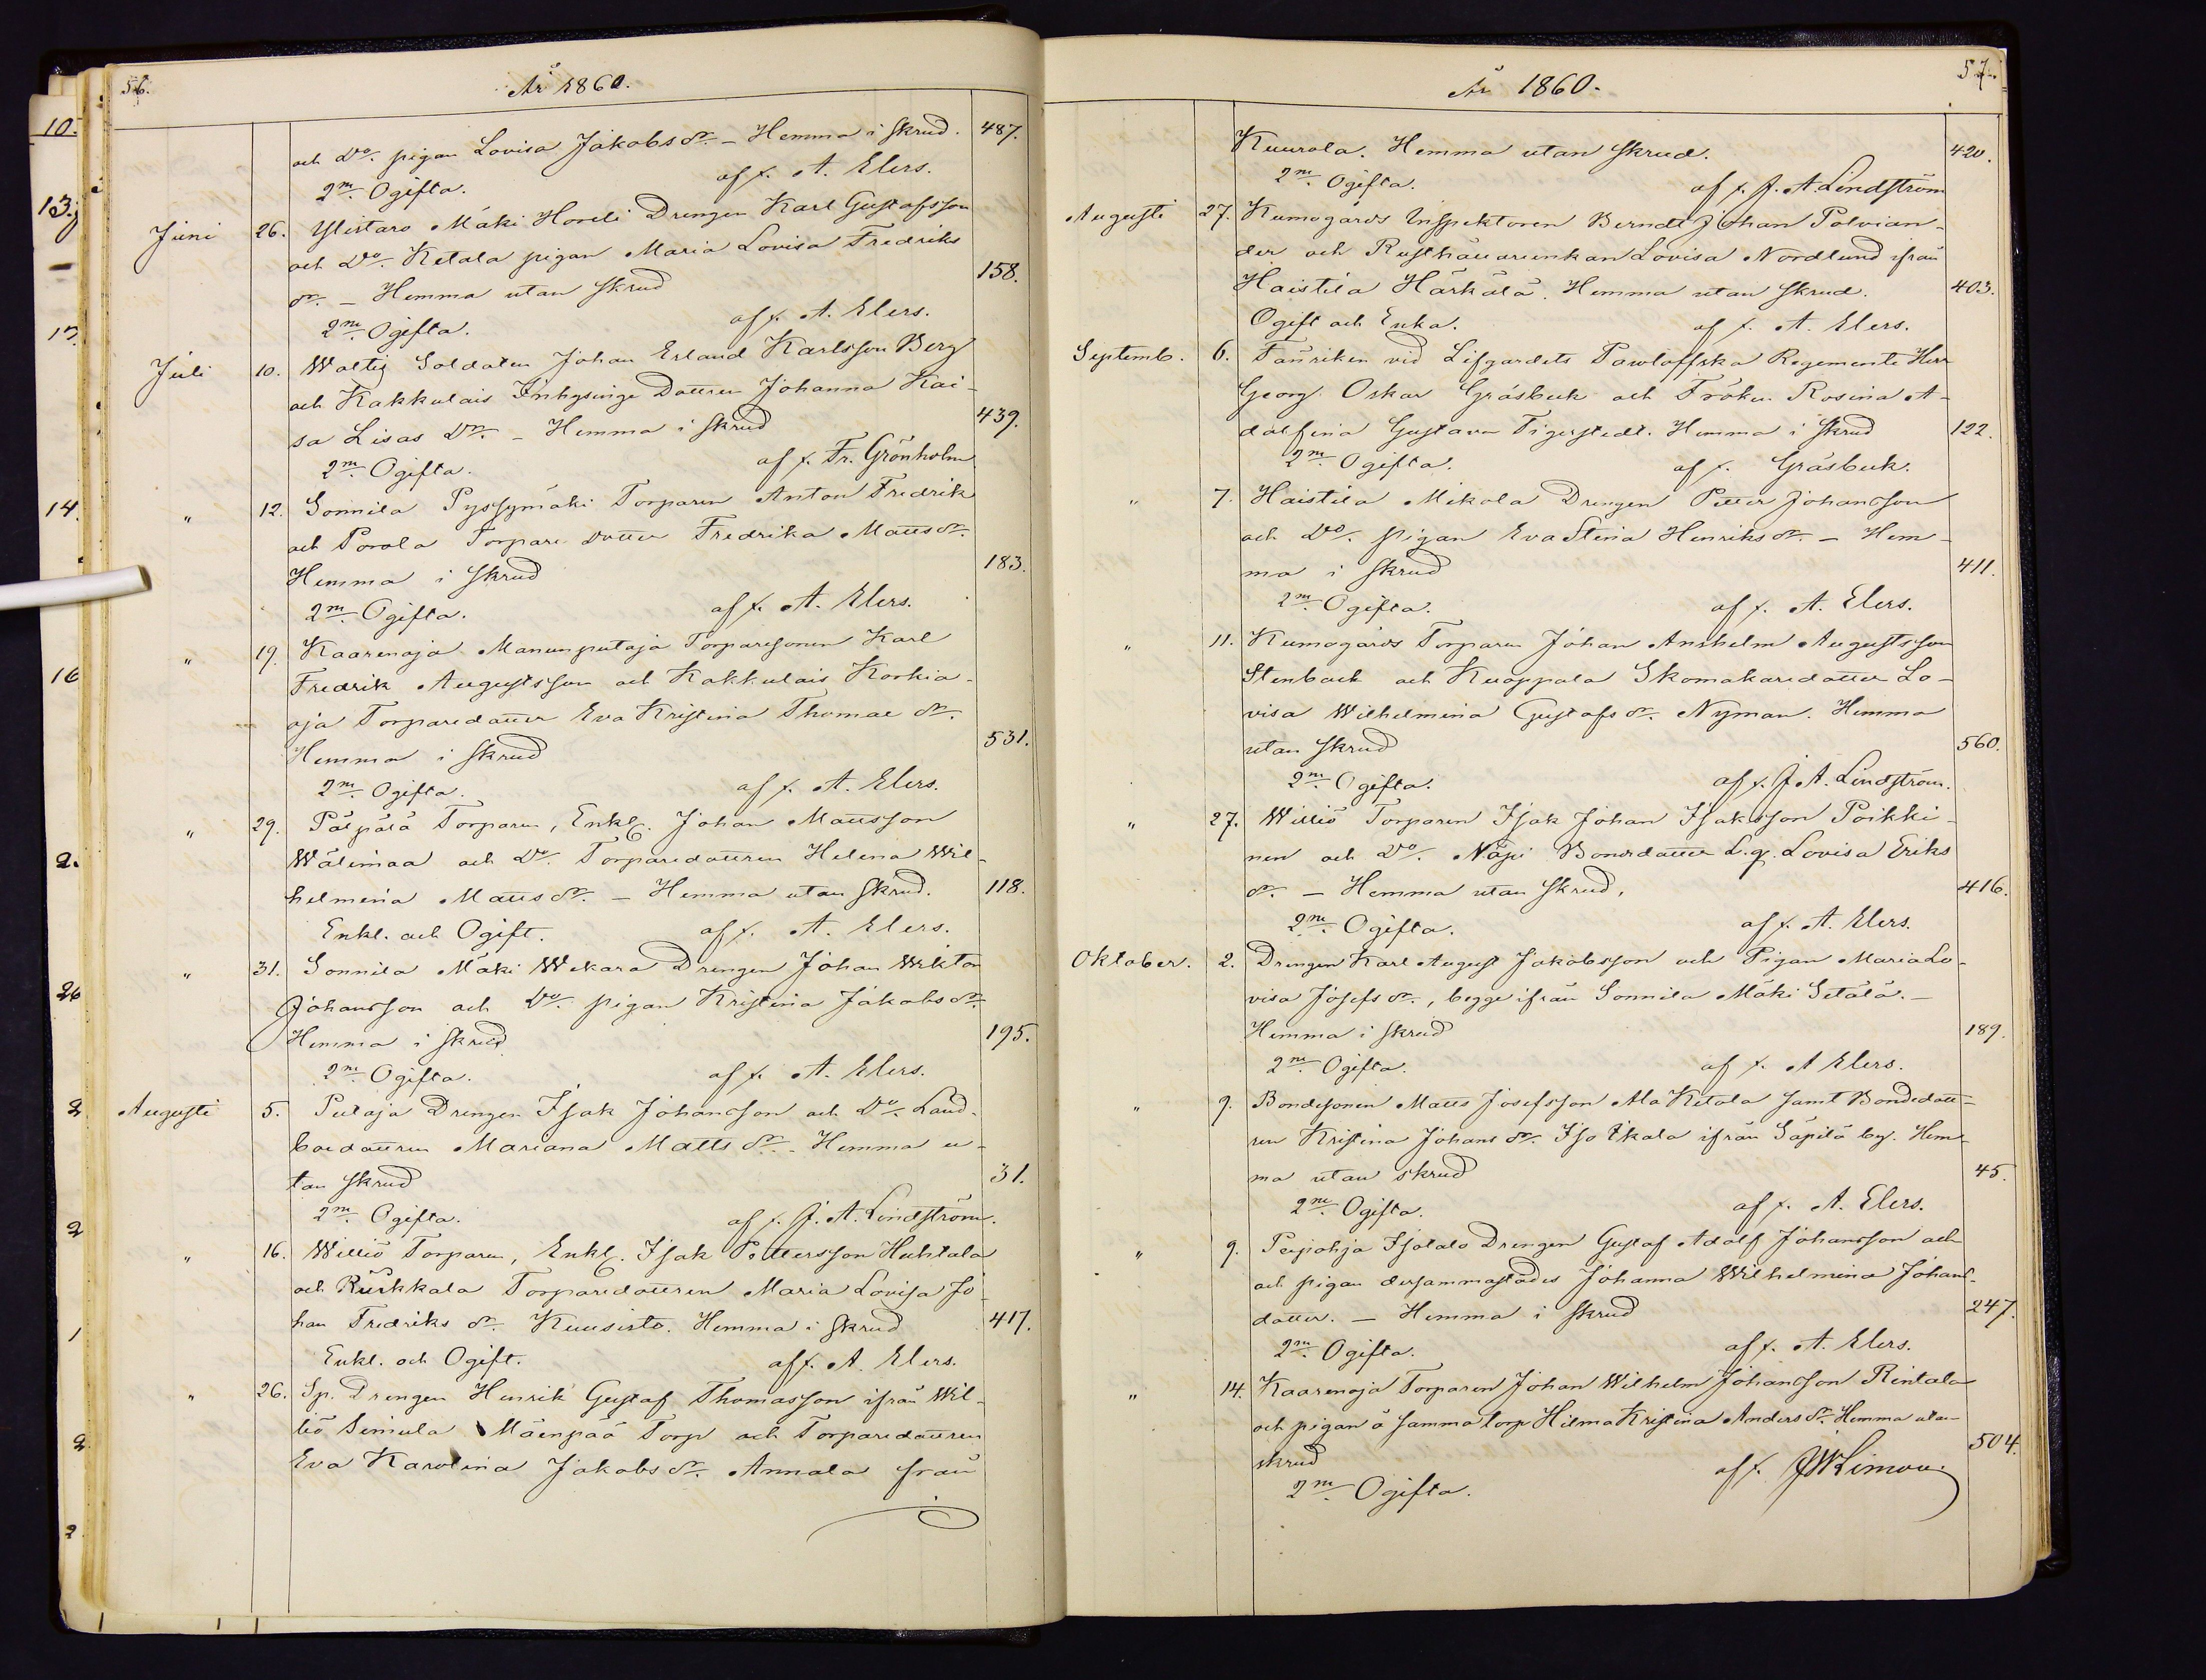 56.
År 1860.
och Do. pigan Lovisa Jakobs dr. – Hemma i skrud. 487.
2m. Ogifta. af f. A. Elers.
Juni 26. Ylistaro Mäki Hoveli Drengen Karl Gustafsson
och Do. Ketala pigan Maria Lovisa Fredriks
dr. – Hemma utan skrud 158.
2m. Ogifta. af f. A. Elers.
Juli 10. Waltig Soldaten Johan Erland Karlsson Berg
och Kakkulais Inhysinge Dottren Johanna Kai-
sa Lisas Dr. – Hemma i skrud 439.
2m. Ogifta. af f. Fr. Grönholm
" 12. Sonnila Pyssymäki Torparen Anton Fredrik
och Porola Torpare dotter Fredrika Matts dr.
Hemma i skrud 183.
2m. Ogifta. af f. A. Elers.
" 19. Kaarenoja Manunputaja Torparesonen Karl
Fredrik Augustsson och Kakkulais Korkia-
oja Torparedotter Eva Kristina Thomae dr.
Hemma i skrud 531.
2m. Ogifta. af f. A. Elers.
" 29. Pälpälä Torparen, Enkl. Johan Mattsson
Wälimaa och Do. Torparedottren Helena Wil-
helmina Matts dr. – Hemma utan skrud. 118.
Enkl. och Ogift. af f. A. Elers.
" 31. Sonnila Mäki Wekara Drengen Johan Wiktor
Johansson och Do. pigan Kristina Jakobs dr.
Hemma i skrud 195.
2m. Ogifta. af f. A. Elers.
Augusti 5. Putaja Drengen Isak Johansson och Do. Land-
boedottren Mariana Matts dr. – Hemma u-
tan skrud 31.
2m. Ogifta. af f. J. A. Lindström.
" 16. Williö Torparen, Enkl. Isak Pettersson Huhtala
och Ruskkala Torparedottren Maria Lovisa Jo-
han Fredriks dr. Kuusisto. Hemma i skrud 417.
Enkl. och Ogift. af f. A. Elers.
" 26. Sp. Drengen Henrik Gustaf Thomasson ifrån Wil-
liö Simula Mäenpää Torp och Torparedottren
Eva Karolina Jakobs dr. Annala från
57.
År 1860.
Kuurola. Hemma utan skrud. 420.
2m. Ogifta. af f. J. A. Lindström
Augusti 27. Kumogårds Inspektoren Berndt Johan Polvian-
der och Rusthållarenkan Lovisa Nordlund ifrån
Haistila Härkälä. Hemma utan skrud. 403.
Ogift och Enka. af f. A. Elers.
Septemb. 6. Fänriken vid Lifgardets Pawloffska Regemente Herr
Georg Oskar Gråsbeck och Fröken Rosina A-
dolfina Gustava Tigerstedt. Hemma i skrud 122.
2m. Ogifta. af f. Gråsbeck.
" 7. Haistila Mikola Drengen Petter Johansson
och Do. pigan Eva Stina Henriks dr. – Hem-
ma i skrud 411.
2m. Ogifta. af f. A. Elers.
" 11. Kumogårds Torparen Johan Anshelm Augustsson
Stenback och Kuoppala Skomakaredotter Lo-
visa Wilhelmina Gustafs dr. Nyman. Hemma
utan skrud 560.
2m. Ogifta. af f. J. A. Lindström.
" 27. Williö Torparen Isak Johan Isaksson Poikki-
nen och Do. Näpi Bondedotter L. q. Lovisa Eriks
dr. – Hemma utan skrud, 416.
2m. Ogifta. af f. A. Elers.
Oktober. 2. Drengen Karl August Jakobsson och Pigan Maria Lo-
visa Josefs dr., begge ifrån Sonnila Mäki Setälä. –
Hemma i skrud 189.
2m. Ogifta. af f. A Elers.
" 9. Bondesonen Matts Josefsson Ala Ketola samt Bondedott-
ren Kristina Johans dr. Iso Ekala ifrån Säpilä by. Hem-
ma utan skrud 45.
2m. Ogifta. af f. A. Elers.
" 9. Peipohja Isotalo Drengen Gustaf Adolf Johansson och
och pigan dersammastädes Johanna Wilhelmina Johans-
dotter. – Hemma i skrud 247.
2m. Ogifta. af f. A. Elers.
" 14. Kaarenoja Torparen Johan Wilhelm Johansson Rintala
och pigan å samma torp Hilma Kristina Anders dr. Hemma utan
skrud 504.
2m. Ogifta. af f.
10.
13.
14.
16
2.
26
2
2
1
2
2